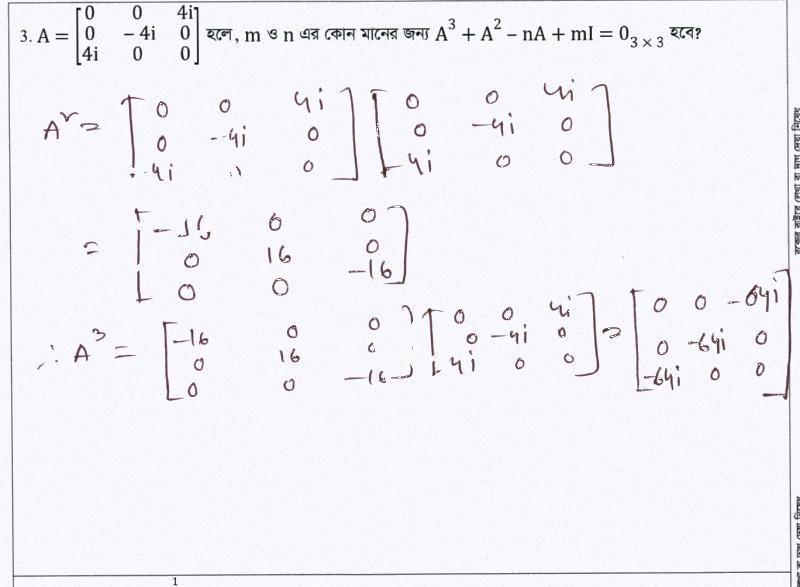 3. A = [0 0 4i; 0 - 4i 0; 4i 0 0] হলে, m ও n এর কোন মানের জন্য A³ + A² − nA + mI = 0₃ₓ₃ হবে?
A² = [0 0 4i; 0 -4i 0; 4i 0 0] [0 0 4i; 0 -4i 0; 4i 0 0]
= [-16 0 0; 0 16 0; 0 0 -16]
∴ A³ = [-16 0 0; 0 16 0; 0 0 -16] [0 0 4i; 0 -4i 0; 4i 0 0] = [0 0 -64i; 0 -64i 0; -64i 0 0]
1